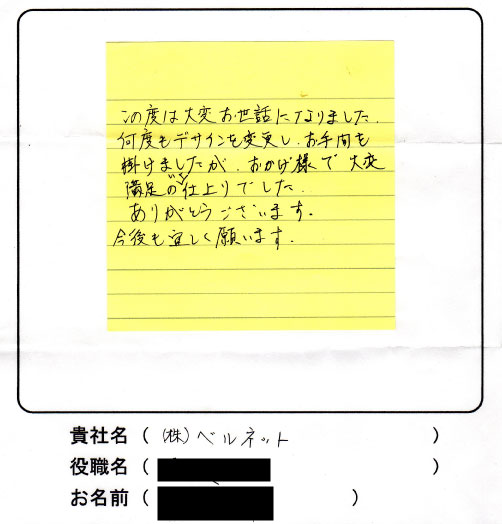 この度は大変お世話になりました.
何度もデザインを変更し、お手間も
掛けましたが、おかげ様で大変
満足の行く仕上りでした.
ありがとうございます。
今後も宜しく願います.
貴社名 ( (株)ベルネット )
役職名 ( )
お名前 ( )